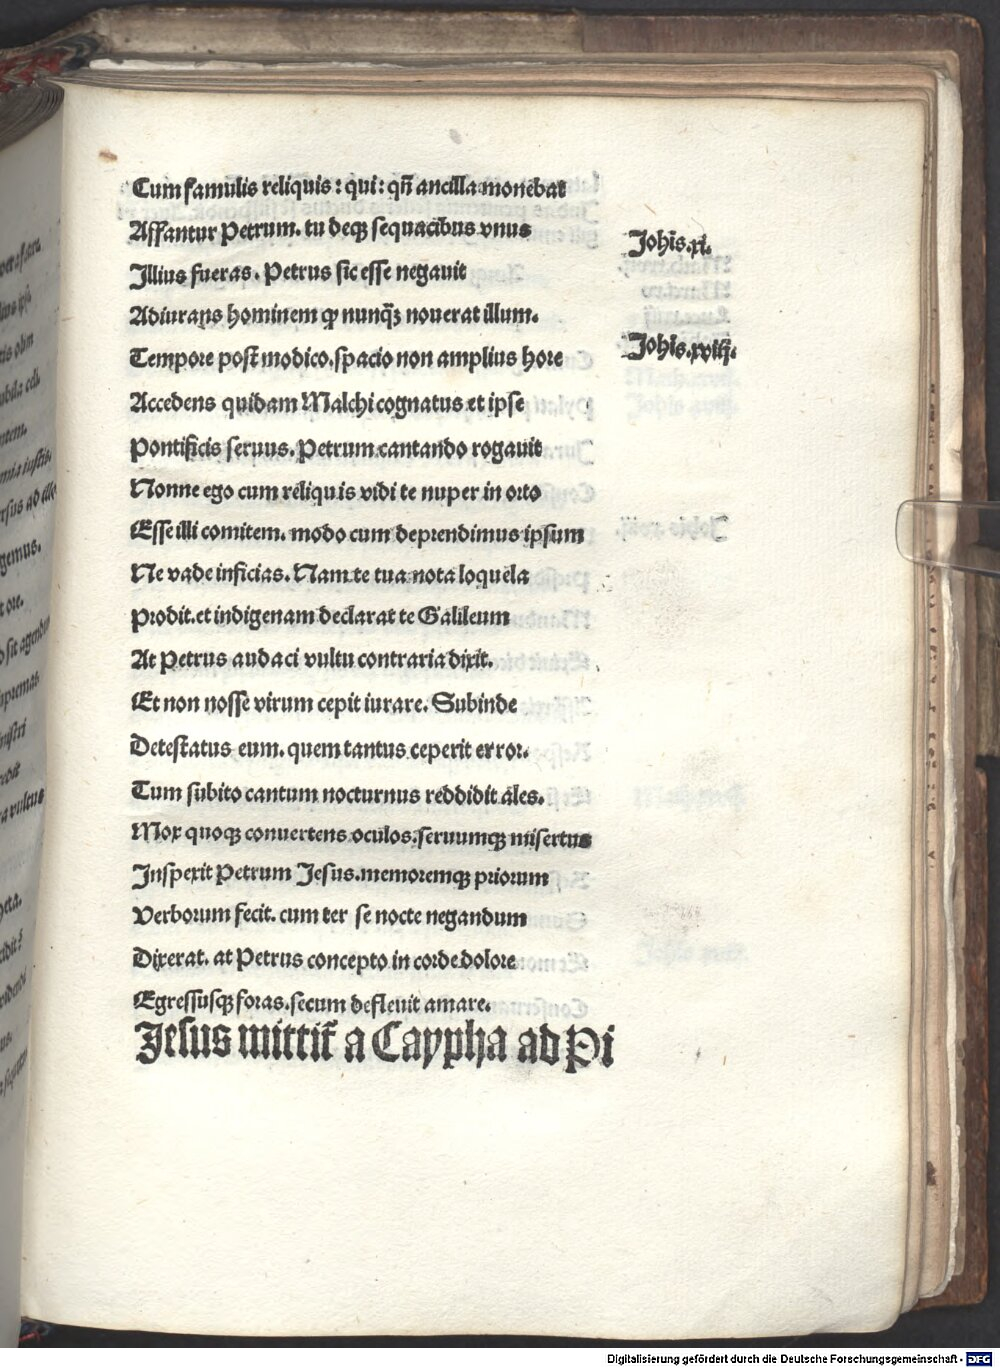 Cum famulis reliquis : qui : qñ ancilla monebat
Affantur Petrum. tu deqꝫ sequacibus vnus
Illius fueras. Petrus sic esse negauit
Adiurans hominem ꝙ nunq̃ꝫ nouerat illum.
Tempore post modico. spacio non amplius hore
Accedens quidam Malchi cognatus et ipse
Pontificis seruus. Petrum cantando rogauit
Nonne ego cum reliquis vidi te nuper in orto
Esse illi comitem. modo cum deprendimus ipsum
Ne vade inficias. Nam te tua nota loquela
Prodit. et indigenam declarat te Galileum
At Petrus audaci vultu contraria dixit.
Et non nosse virum cepit iurare. Subinde
Detestatus eum. quem tantus ceperit error.
Tum subito cantum nocturnus reddidit ales.
Mox quoqꝫ conuertens oculos. seruumqꝫ misertus
Inspexit Petrum Jesus. memoremqꝫ priorum
Verborum fecit. cum ter se nocte negandum
Dixerat. at Petrus concepto in corde dolore
Egressusqꝫ foras. secum defleuit amare.
Jesus mittit̃ a Cayphа ad Pi
Johĩs. xi.
Johĩs. xviij.
Digitalisierung gefördert durch die Deutsche Forschungsgemeinschaft - DFG